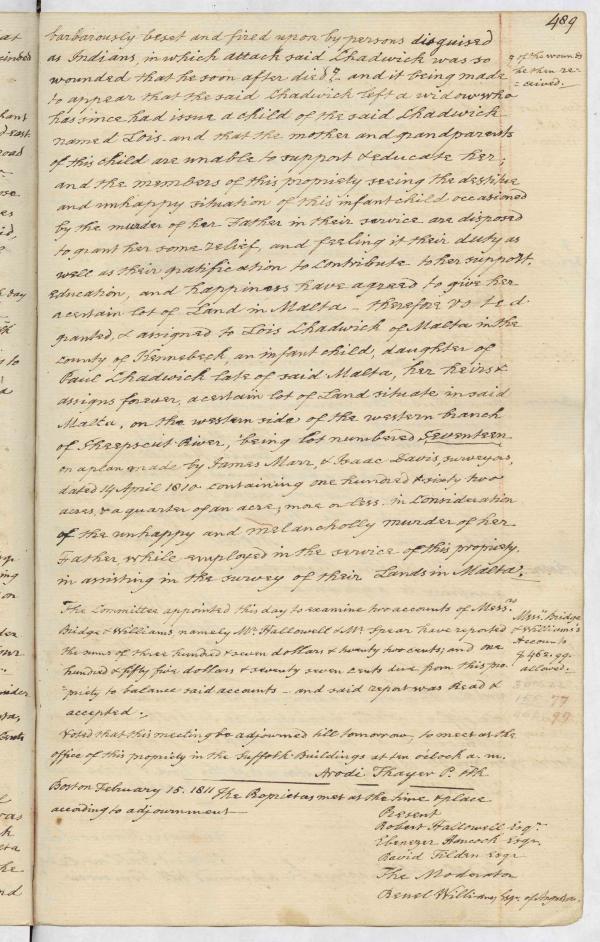 489
barbarously beset and fired upon by persons disguised
as Indians, in which attack said Chadwick was so
wounded that he soon after died ⁊ and it being made
of the wounds
he then re-
=ceived.
to appear that the said Chadwick left a widow who
has since had issue a child of the said Chadwick
named Lois and that the mother and grandparents
of this child are unable to support & educate her,
and the members of this propriety seeing the destitute
and unhappy situation of this infant child occasioned
by the murder of her Father in their service are disposed
to grant her some relief, and feeling it their duty as
well as their gratification to contribute to her support,
education, and happiness have agreed to give her
a certain lot of Land in Malta – therefore
granted, & assigned to Lois Chadwick of Malta in the
county of Kennebeck, an infant child, daughter of
Paul Chadwick late of said Malta, her heirs &
assigns forever, a certain lot of Land situate in said
Malta, on the western side of the western branch
of Sheepscut River, being lot numbered Seventeen
on a plan made by James Marr, & Isaac Davis, surveyors,
dated 14 April 1810 containing one hundred & sixty two
acres, & a quarter of an acre, more or less. in consideration
of the unhappy and melancholly murder of her
Father, while employed in the service of this propriety,
in assisting in the survey of their Lands in Malta.
The Committee appointed this day to examine two accounts of Mess.rs
Bridge & Williams namely Mr. Hallowell & Mr. Spear have reported
the sums of three hundred & seven dollars & twenty two cents; and one
hundred & fifty five dollars & seventy seven cents due from this pro-
priety to balance said accounts – and said report was Read &
accepted.
Mess.rs Bridge
& Williams's
Accounts
$ 462.99.
allowed.
77
99
Voted that this meeting be adjourned till tomorrow, to meet at the
office of this propriety in the Suffolk Buildings at ten o'clock a.m.
Arodi Thayer P. Clk
Boston February 15. 1811 The Proprietors met at the time & place
according to adjournment –
Present
Robert Hallowell Esqr.
Ebenezer Hancock Esqr.
David Tilden Esqr
The Moderator
Reuel Williams Esqr. of Augusta.